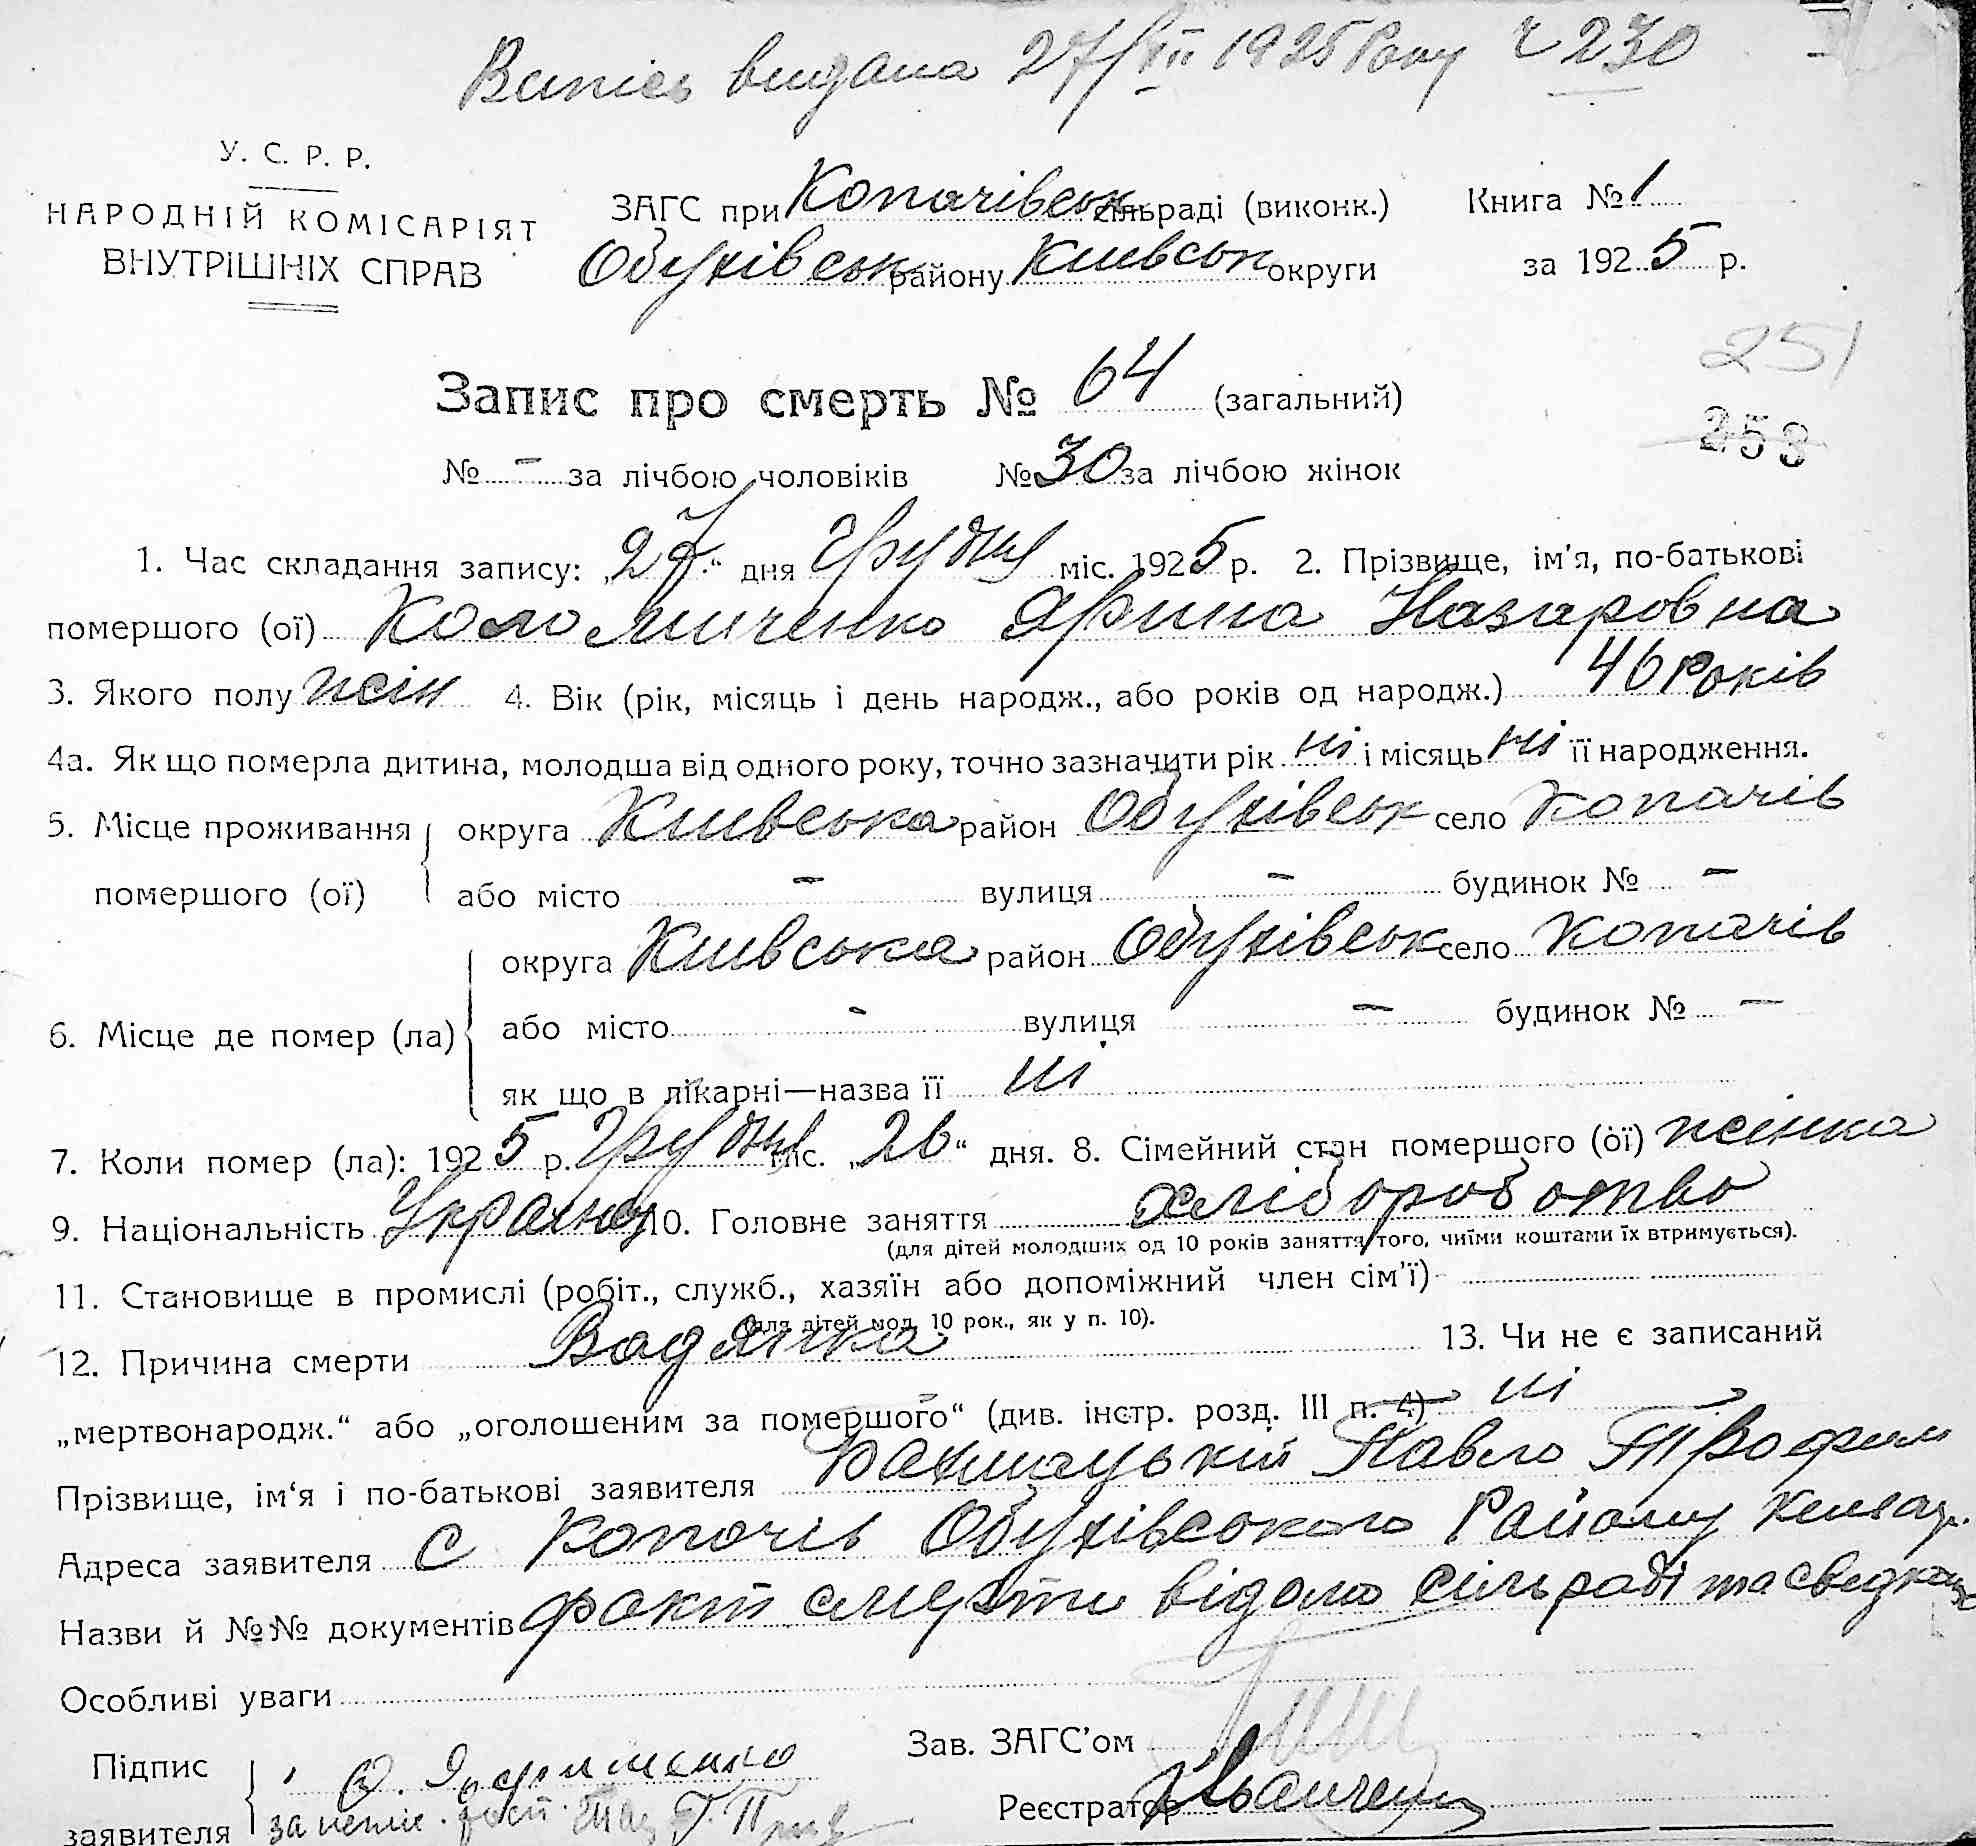 Випісь видана 27/VII 1925 Року Ч 230
У. С. Р. Р.
НАРОДНІЙ КОМІСАРІЯТ
ВНУТРІШНІХ СПРАВ
ЗАГС при Копачівськ сільраді (виконк.)
Обухівськ району Київськ округи
Книга № 1
за 1925 р.
251
253
Запис про смерть № 64 (загальний)
№ – за лічбою чоловіків № 30 за лічбою жінок
1. Час складання запису: „27“ дня Грудня міс. 1925 р. 2. Прізвище, ім'я, по-батькові
помершого (ої) Коломійченко Ярина Назаровна
3. Якого полу жін 4. Вік (рік, місяць і день народж., або років од народж.) 46 Років
4а. Як що померла дитина, молодша від одного року, точно зазначити рік ні і місяць ні її народження.
5. Місце проживання помершого (ої) округа Київська район Обухівськ село Копачів
або місто – вулиця – будинок № –
6. Місце де помер (ла) округа Київська район Обухівськ село Копачів
або місто - вулиця – будинок № –
як що в лікарні—назва її ні
7. Коли помер (ла): 1925 р. Грудня міс. „26“ дня. 8. Сімейний стан помершого (ої) жінка
9. Національність 10. Головне заняття хліборобство
(для дітей молодших од 10 років заняття того, чиїми коштами їх втримується).
11. Становище в промислі (робіт., служб., хазяїн або допоміжний член сім'ї)
(для дітей мол. 10 рок., як у п. 10).
12. Причина смерти Водянка 13. Чи не є записаний
„мертвонародж.“ або „оголошеним за помершого“ (див. інстр. розд. III п. 4) ні
Прізвище, ім'я і по-батькові заявителя Павло Трофим
Адреса заявителя с Копачів Обухівського Району
Назви й №№ документів факт смерти відомо сільраді та
Особливі уваги
Підпис заявителя
Зав. ЗАГС'ом
Реєстратор